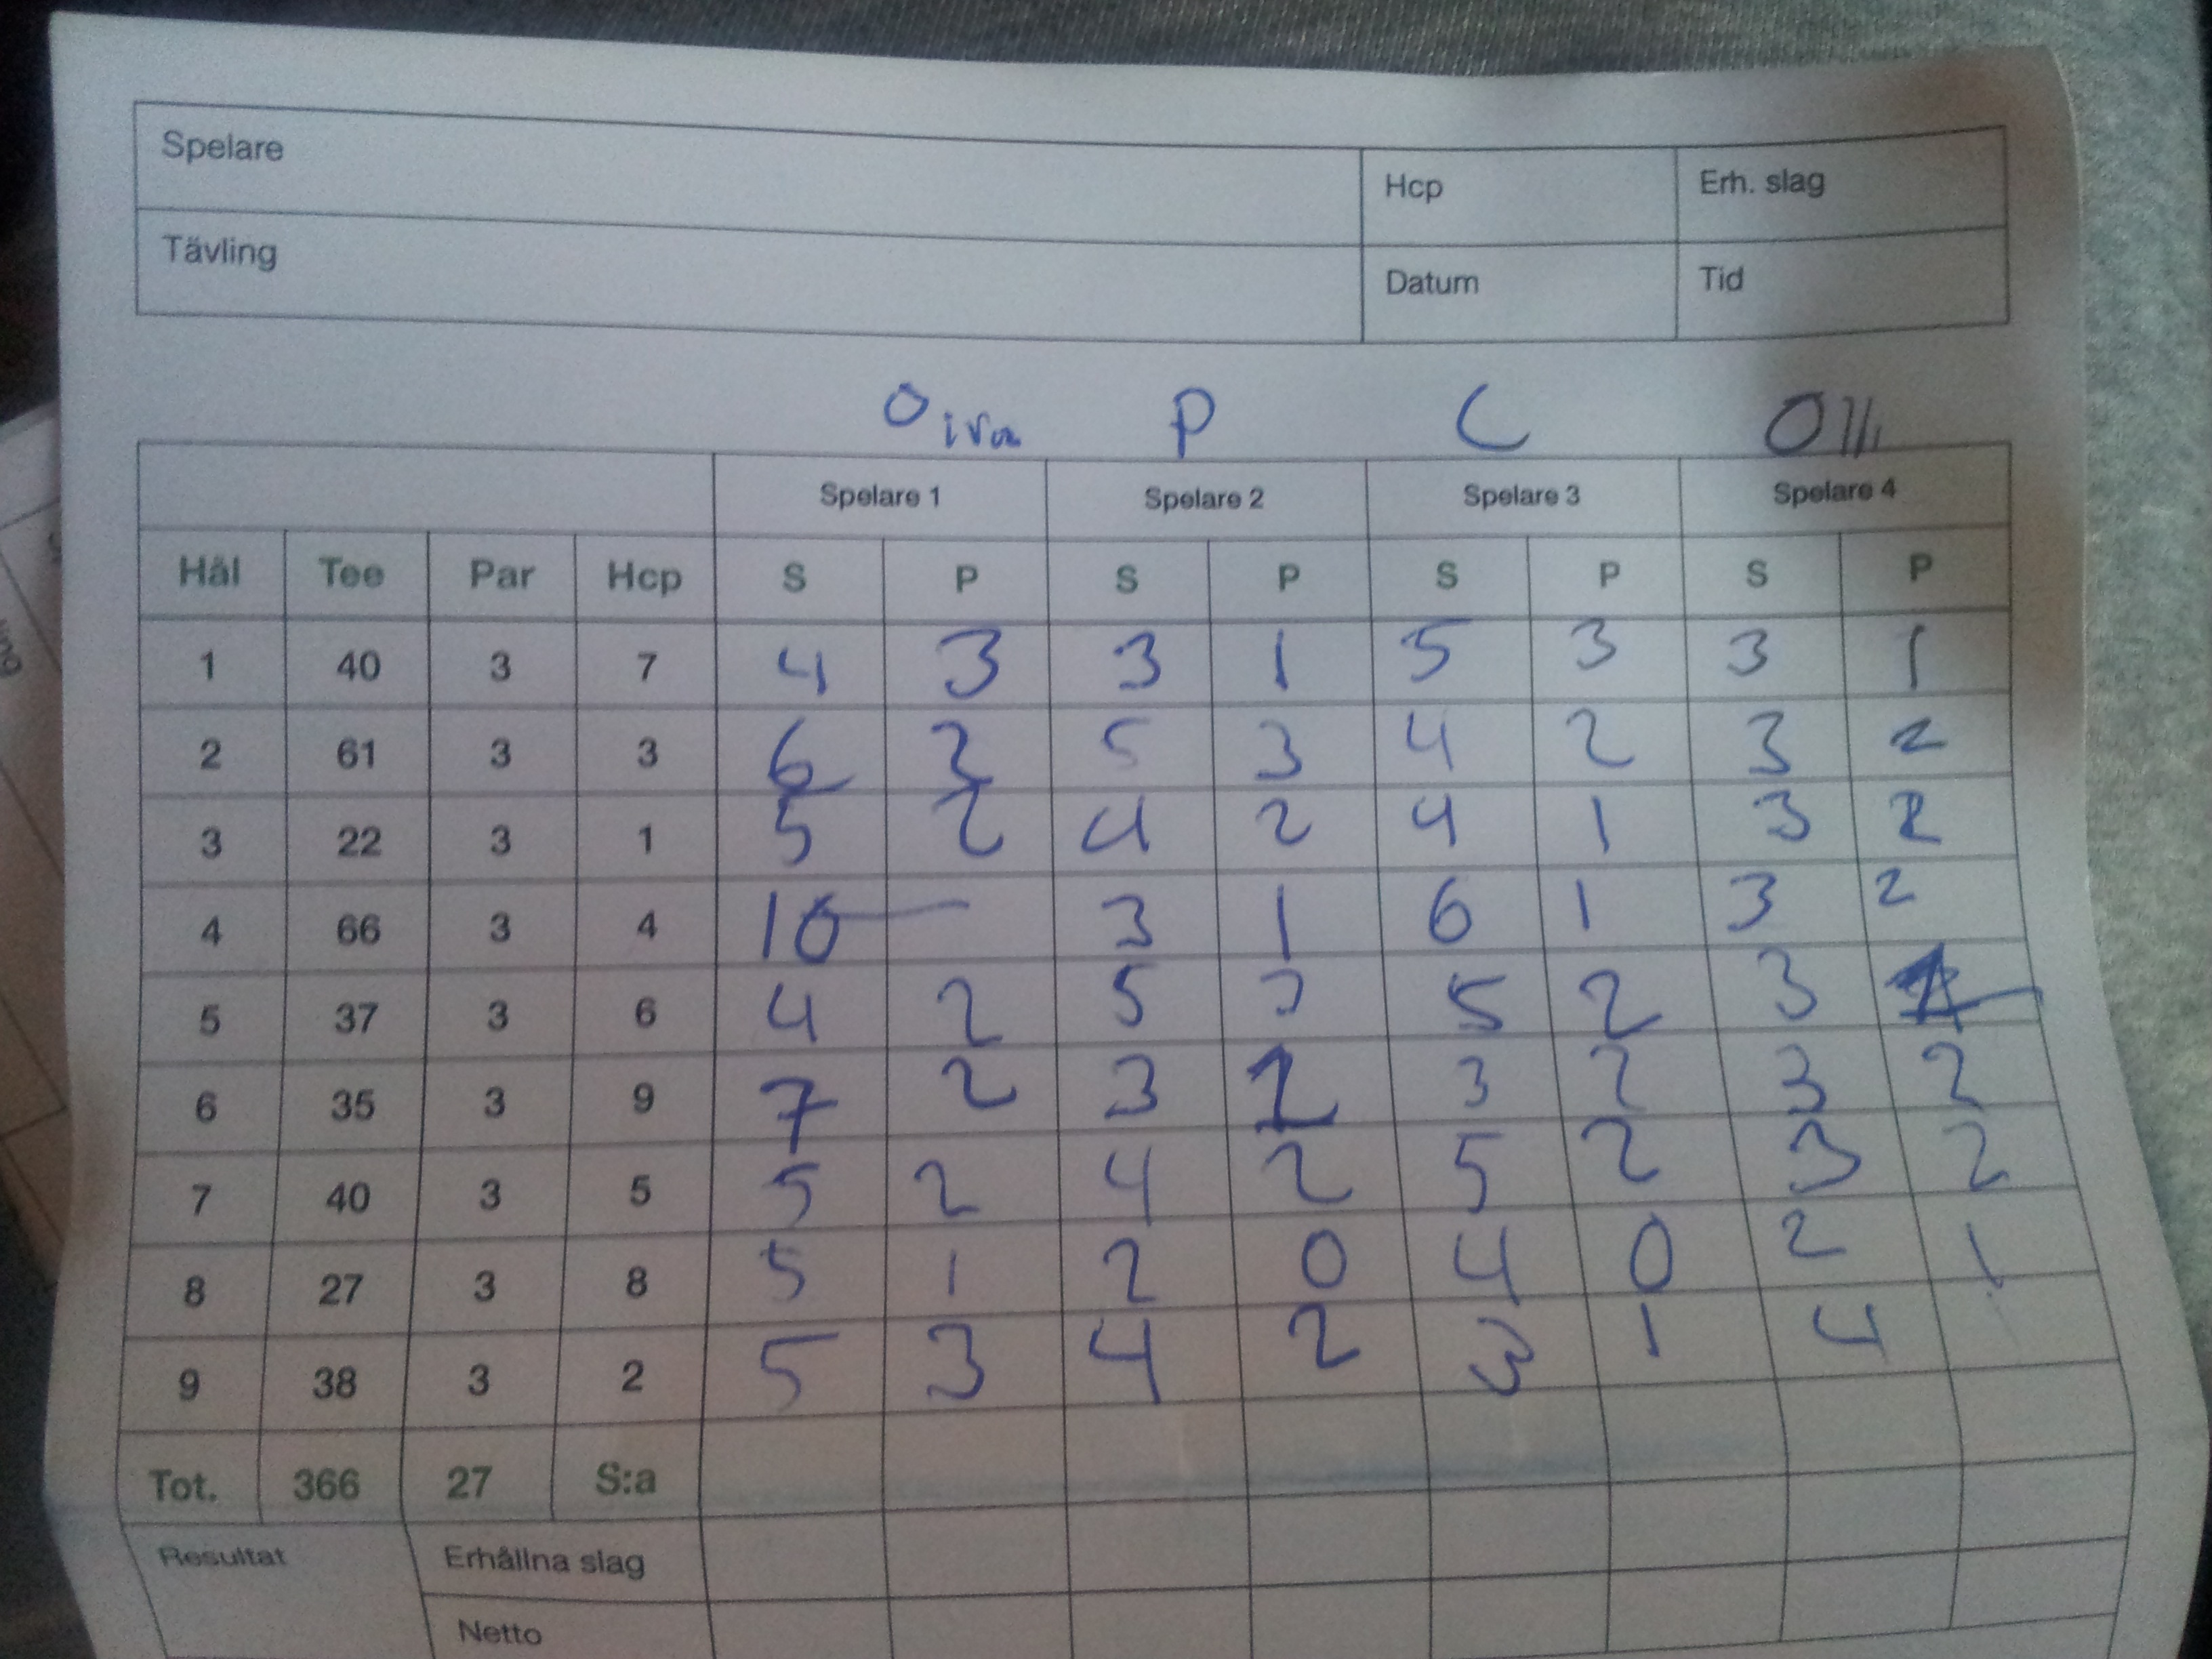 Spelare Hcp Erh. slag
Tävling Datum Tid
Oiva P C Olli
Spelare 1 Spelare 2 Spelare 3 Spelare 4
Hål Tee Par Hcp S P S P S P S P
1 40 3 7 4 3 3 1 5 3 3 1
2 61 3 3 6 5 3 4 2 3 2
3 22 3 1 5 2 4 2 4 1 3 2
4 66 3 4 10 — 3 1 6 1 3 2
5 37 3 6 4 2 5 5 2 3
6 35 3 9 7 2 3 2 3 2 3 2
7 40 3 5 5 2 4 2 5 2 3 2
8 27 3 8 5 1 2 0 4 0 2 1
9 38 3 2 5 3 4 2 3 1 4
Tot. 366 27 S:a
Resultat Erhållna slag
Netto